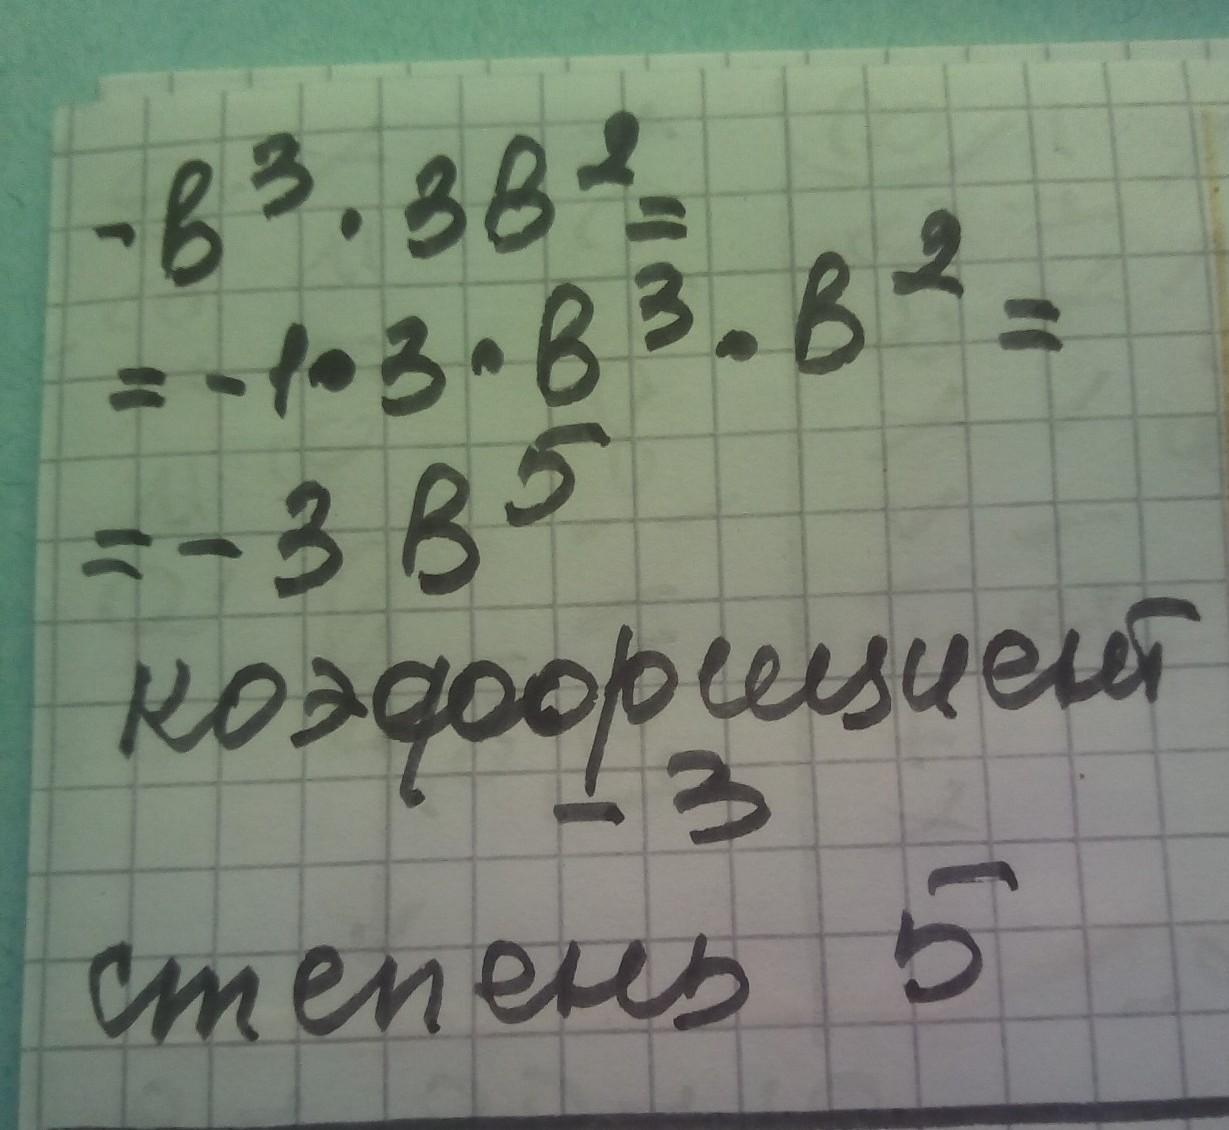 -в³ · 3в² =
= -1 · 3 · в³ · в² =
= -3 в⁵
коэффициент
- 3
степень 5